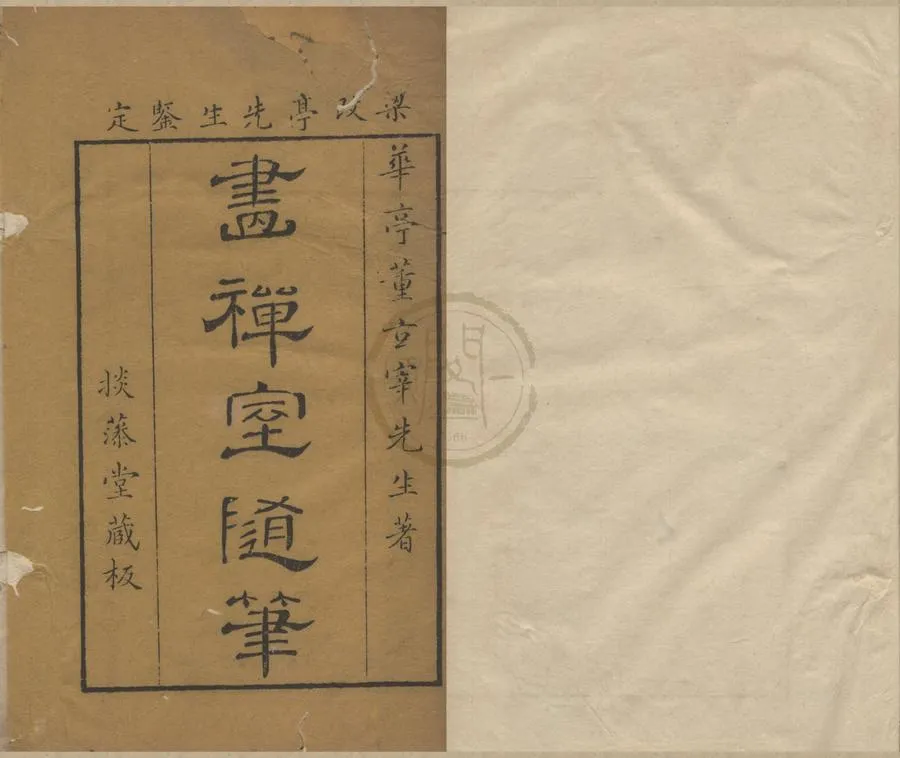 梁改亭先生鑒定
華亭董玄宰先生著
畫禪室隨筆
掞藻堂蔵板